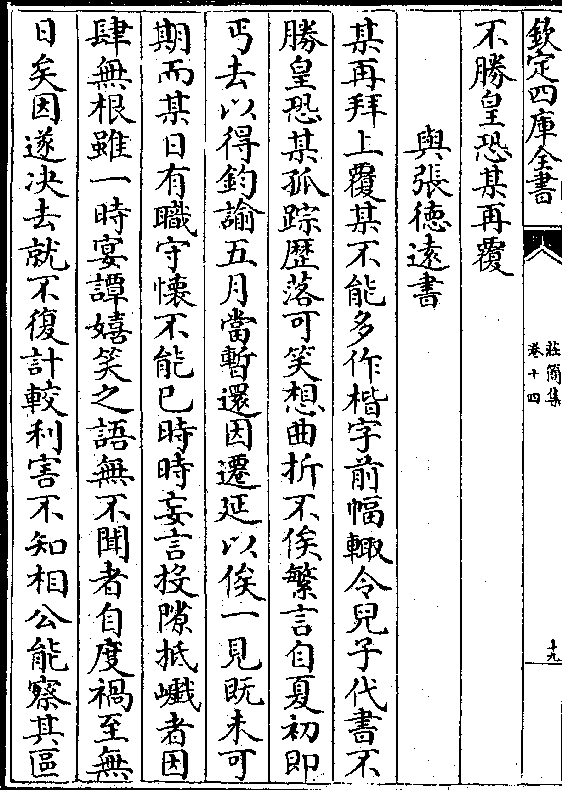 欽定四庫全書
莊簡集
卷十四
十九
不勝皇恐某再覆
與張德遠書
某再拜上覆某不能多作楷字前幅輙令兒子代書不
勝皇恐某孤踪歴落可笑想曲折不俟繁言自夏初即
丐去以得鈞諭五月當暫還因遷延以俟一見既未可
期而某日有職守懷不能已時時妄言投隙抵巇者因
肆無根雖一時宴譚嬉笑之語無不聞者自度禍至無
日矣因遂决去就不復計較利害不知相公能察其區